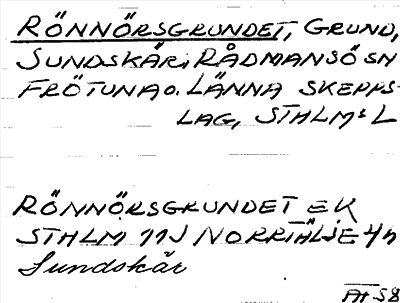 RÖNNÖRSGRUNDET, GRUND,
SUNDSKÄR, RÅDMANSÖ SN
FRÖTUNA O. LÄNNA SKEPPS-
LAG, STHLMS L
RÖNNÖRSGRUNDET EK
STHLM 11J NORRTÄLJE
Sundskär
58